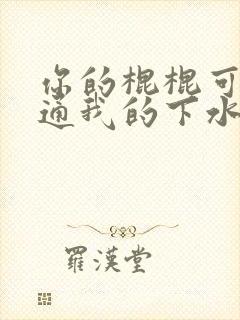 你的棍棍可
通我的下水
羅漢堂